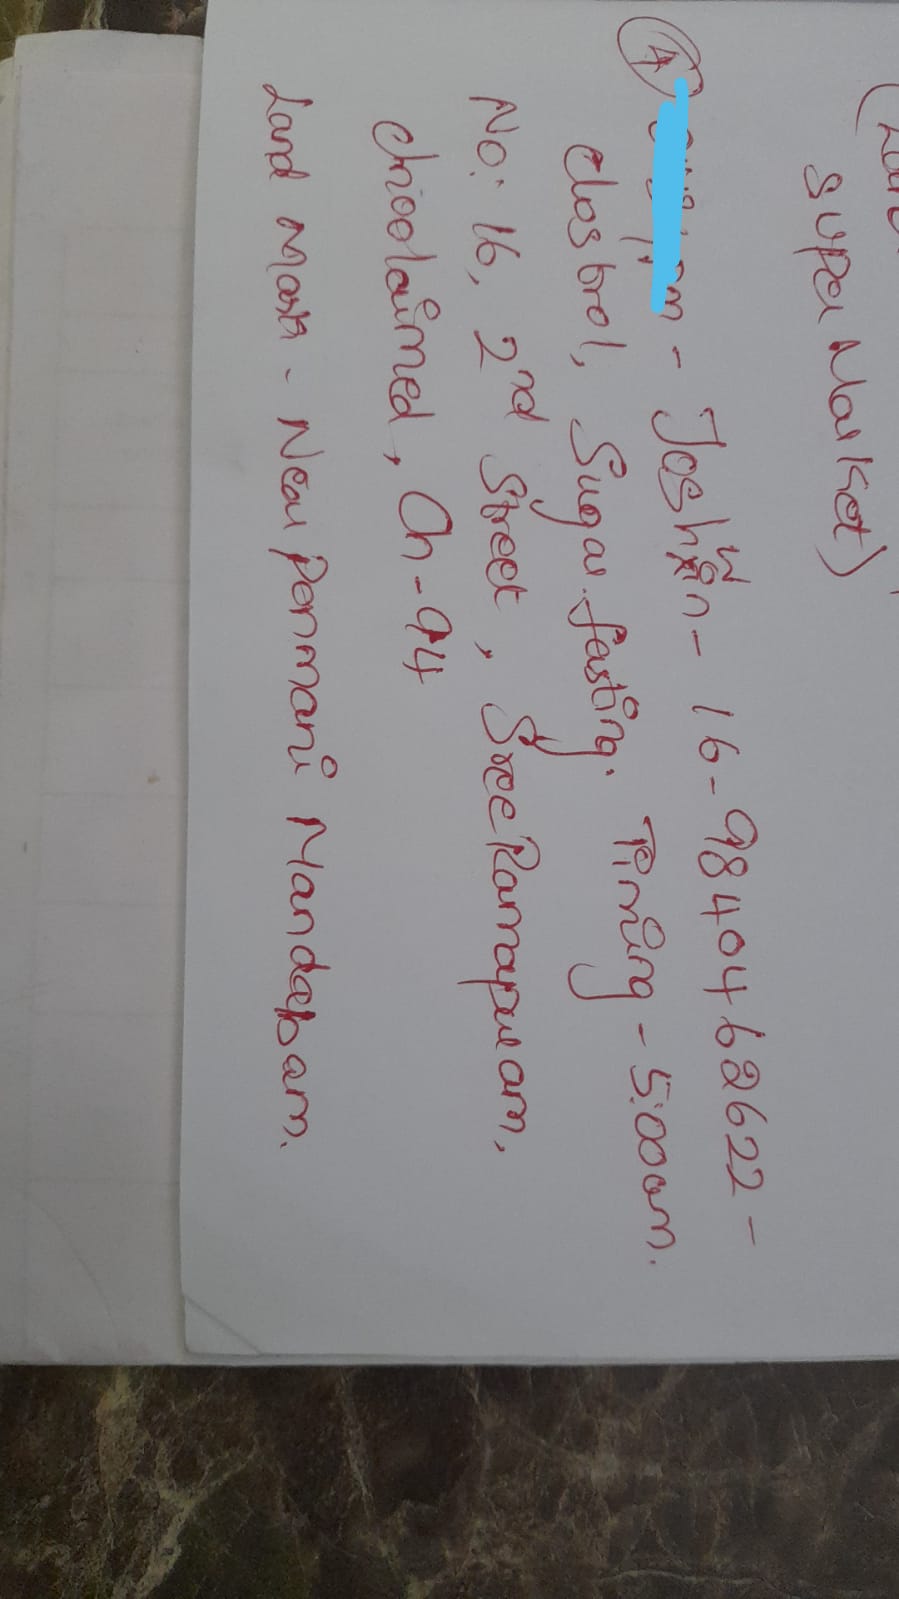 Super Market)
4
- Joshin - 16 - 9840462622 -
closbrol, Sugar fasting. Timing - 5:00am.
No: 16, 2nd Street, Sree Ramapuram,
choolaimed, Ch-94
Land Mark - Near Ponmani Mandabam.